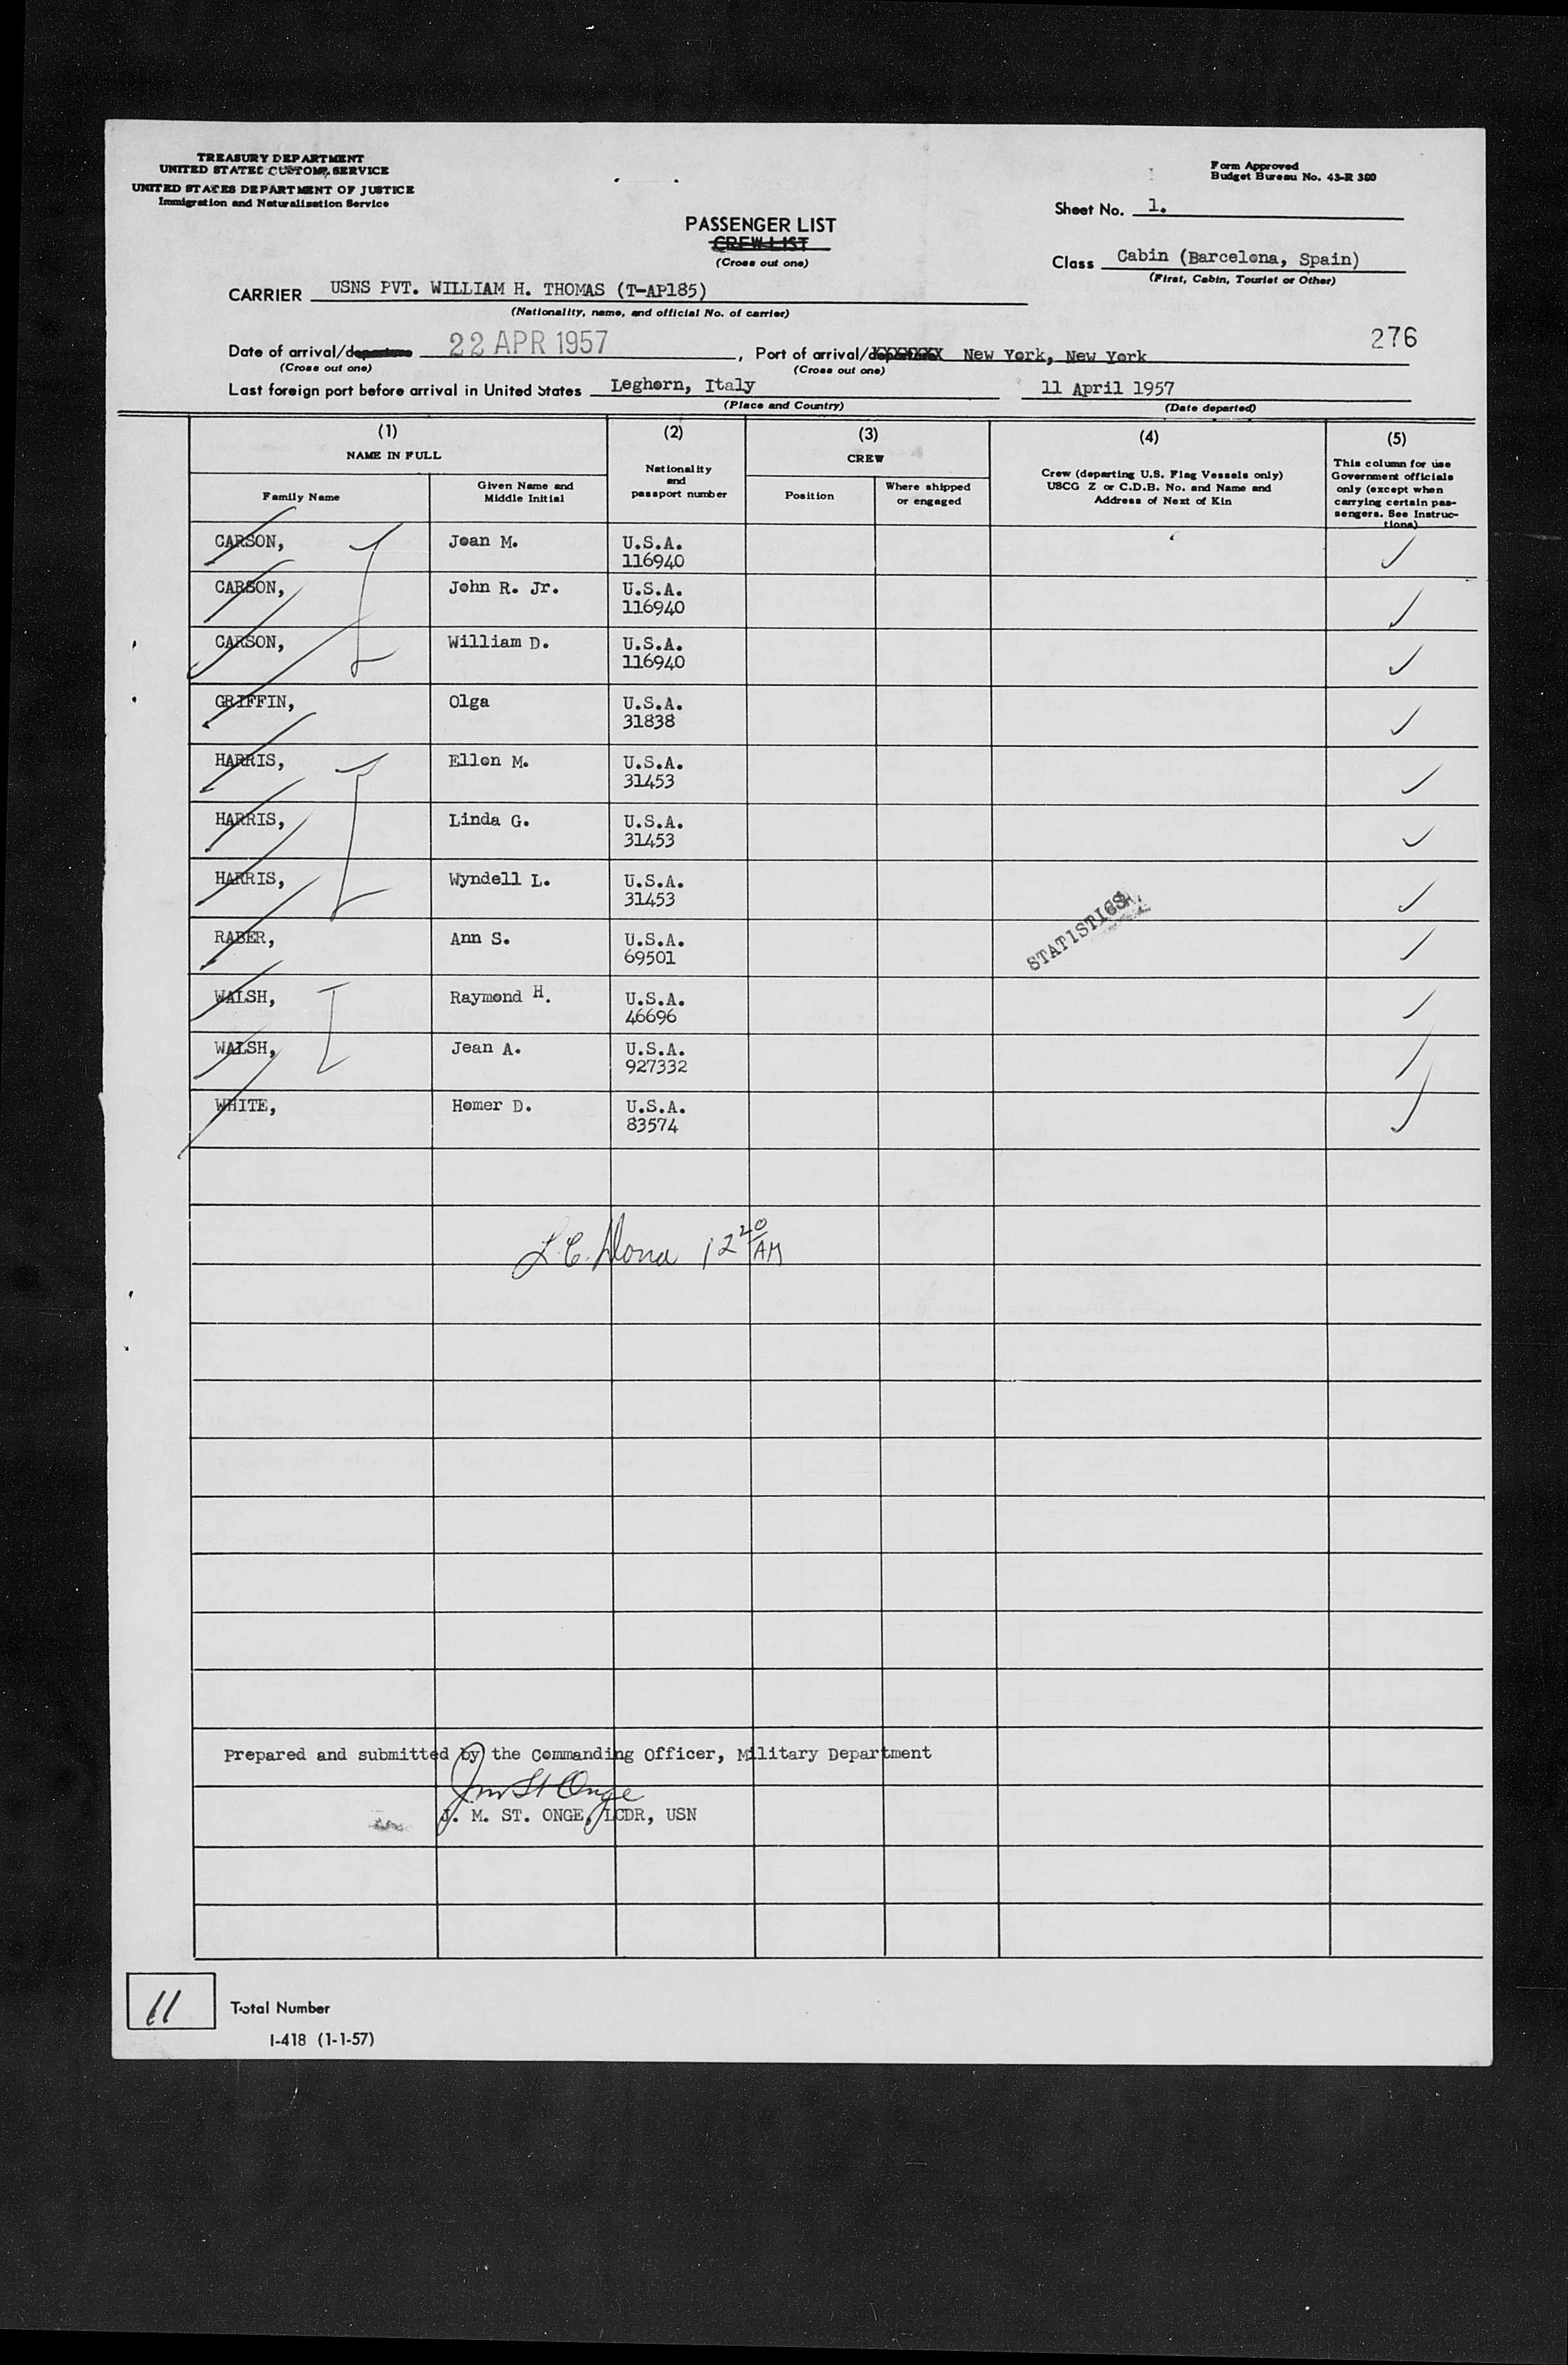 TREASURY DEPARTMENT
UNITED STATES CUSTOMS SERVICE
UNITED STATES DEPARTMENT OF JUSTICE
Immigration and Naturalization Service
Form Approved
Budget Bureau No. 43-R 380
Sheet No. 1.
PASSENGER LIST
CREW LIST
(Cross out one)
Class Cabin (Barcelona, Spain)
(First, Cabin, Tourist or Other)
CARRIER USNS PVT. WILLIAM H. THOMAS (T-AP185)
(Nationality, name, and official No. of carrier)
276
Date of arrival/departure 22 APR 1957, Port of arrival/departure New York, New York
(Cross out one) (Cross out one)
Last foreign port before arrival in United States Leghorn, Italy 11 April 1957
(Place and Country) (Date departed)
(1) (2) (3) (4) (5)
NAME IN FULL
Family Name
Given Name and
Middle Initial
Nationality
and
passport number
CREW
Position
Where shipped
or engaged
Crew (departing U.S. Flag Vessels only)
USCG Z or C.D.B. No. and Name and
Address of Next of Kin
This column for use
Government officials
only (except when
carrying certain pas-
sengers. See Instruc-
tions)
CARSON, Joan M. U.S.A.
116940
CARSON, John R. Jr. U.S.A.
116940
CARSON, William D. U.S.A.
116940
GRIFFIN, Olga U.S.A.
31838
HARRIS, Ellen M. U.S.A.
31453
HARRIS, Linda G. U.S.A.
31453
HARRIS, Wyndell L. U.S.A.
31453
STATISTICS
RABER, Ann S. U.S.A.
69501
WALSH, Raymond H. U.S.A.
46696
WALSH, Jean A. U.S.A.
927332
WHITE, Homer D. U.S.A.
83574
L.C. 12 20 AM
Prepared and submitted by the Commanding Officer, Military Department
J M St Onge
J. M. ST. ONGE, LCDR, USN
11 Total Number
I-418 (1-1-57)